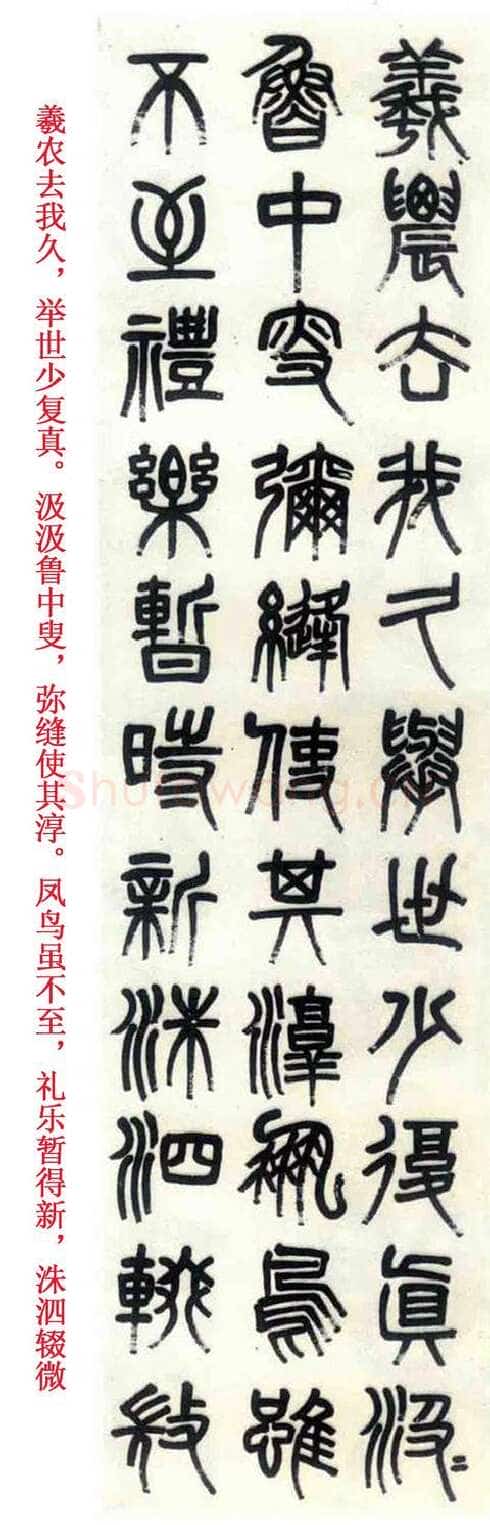 羲農去我久舉世少復真汲〻
魯中叟彌縫使其淳鳳鳥雖
不至禮樂暫時新洙泗輟微
羲农去我久，举世少复真。汲汲鲁中叟，弥缝使其淳。凤鸟虽不至，礼乐暂得新，洙泗辍微